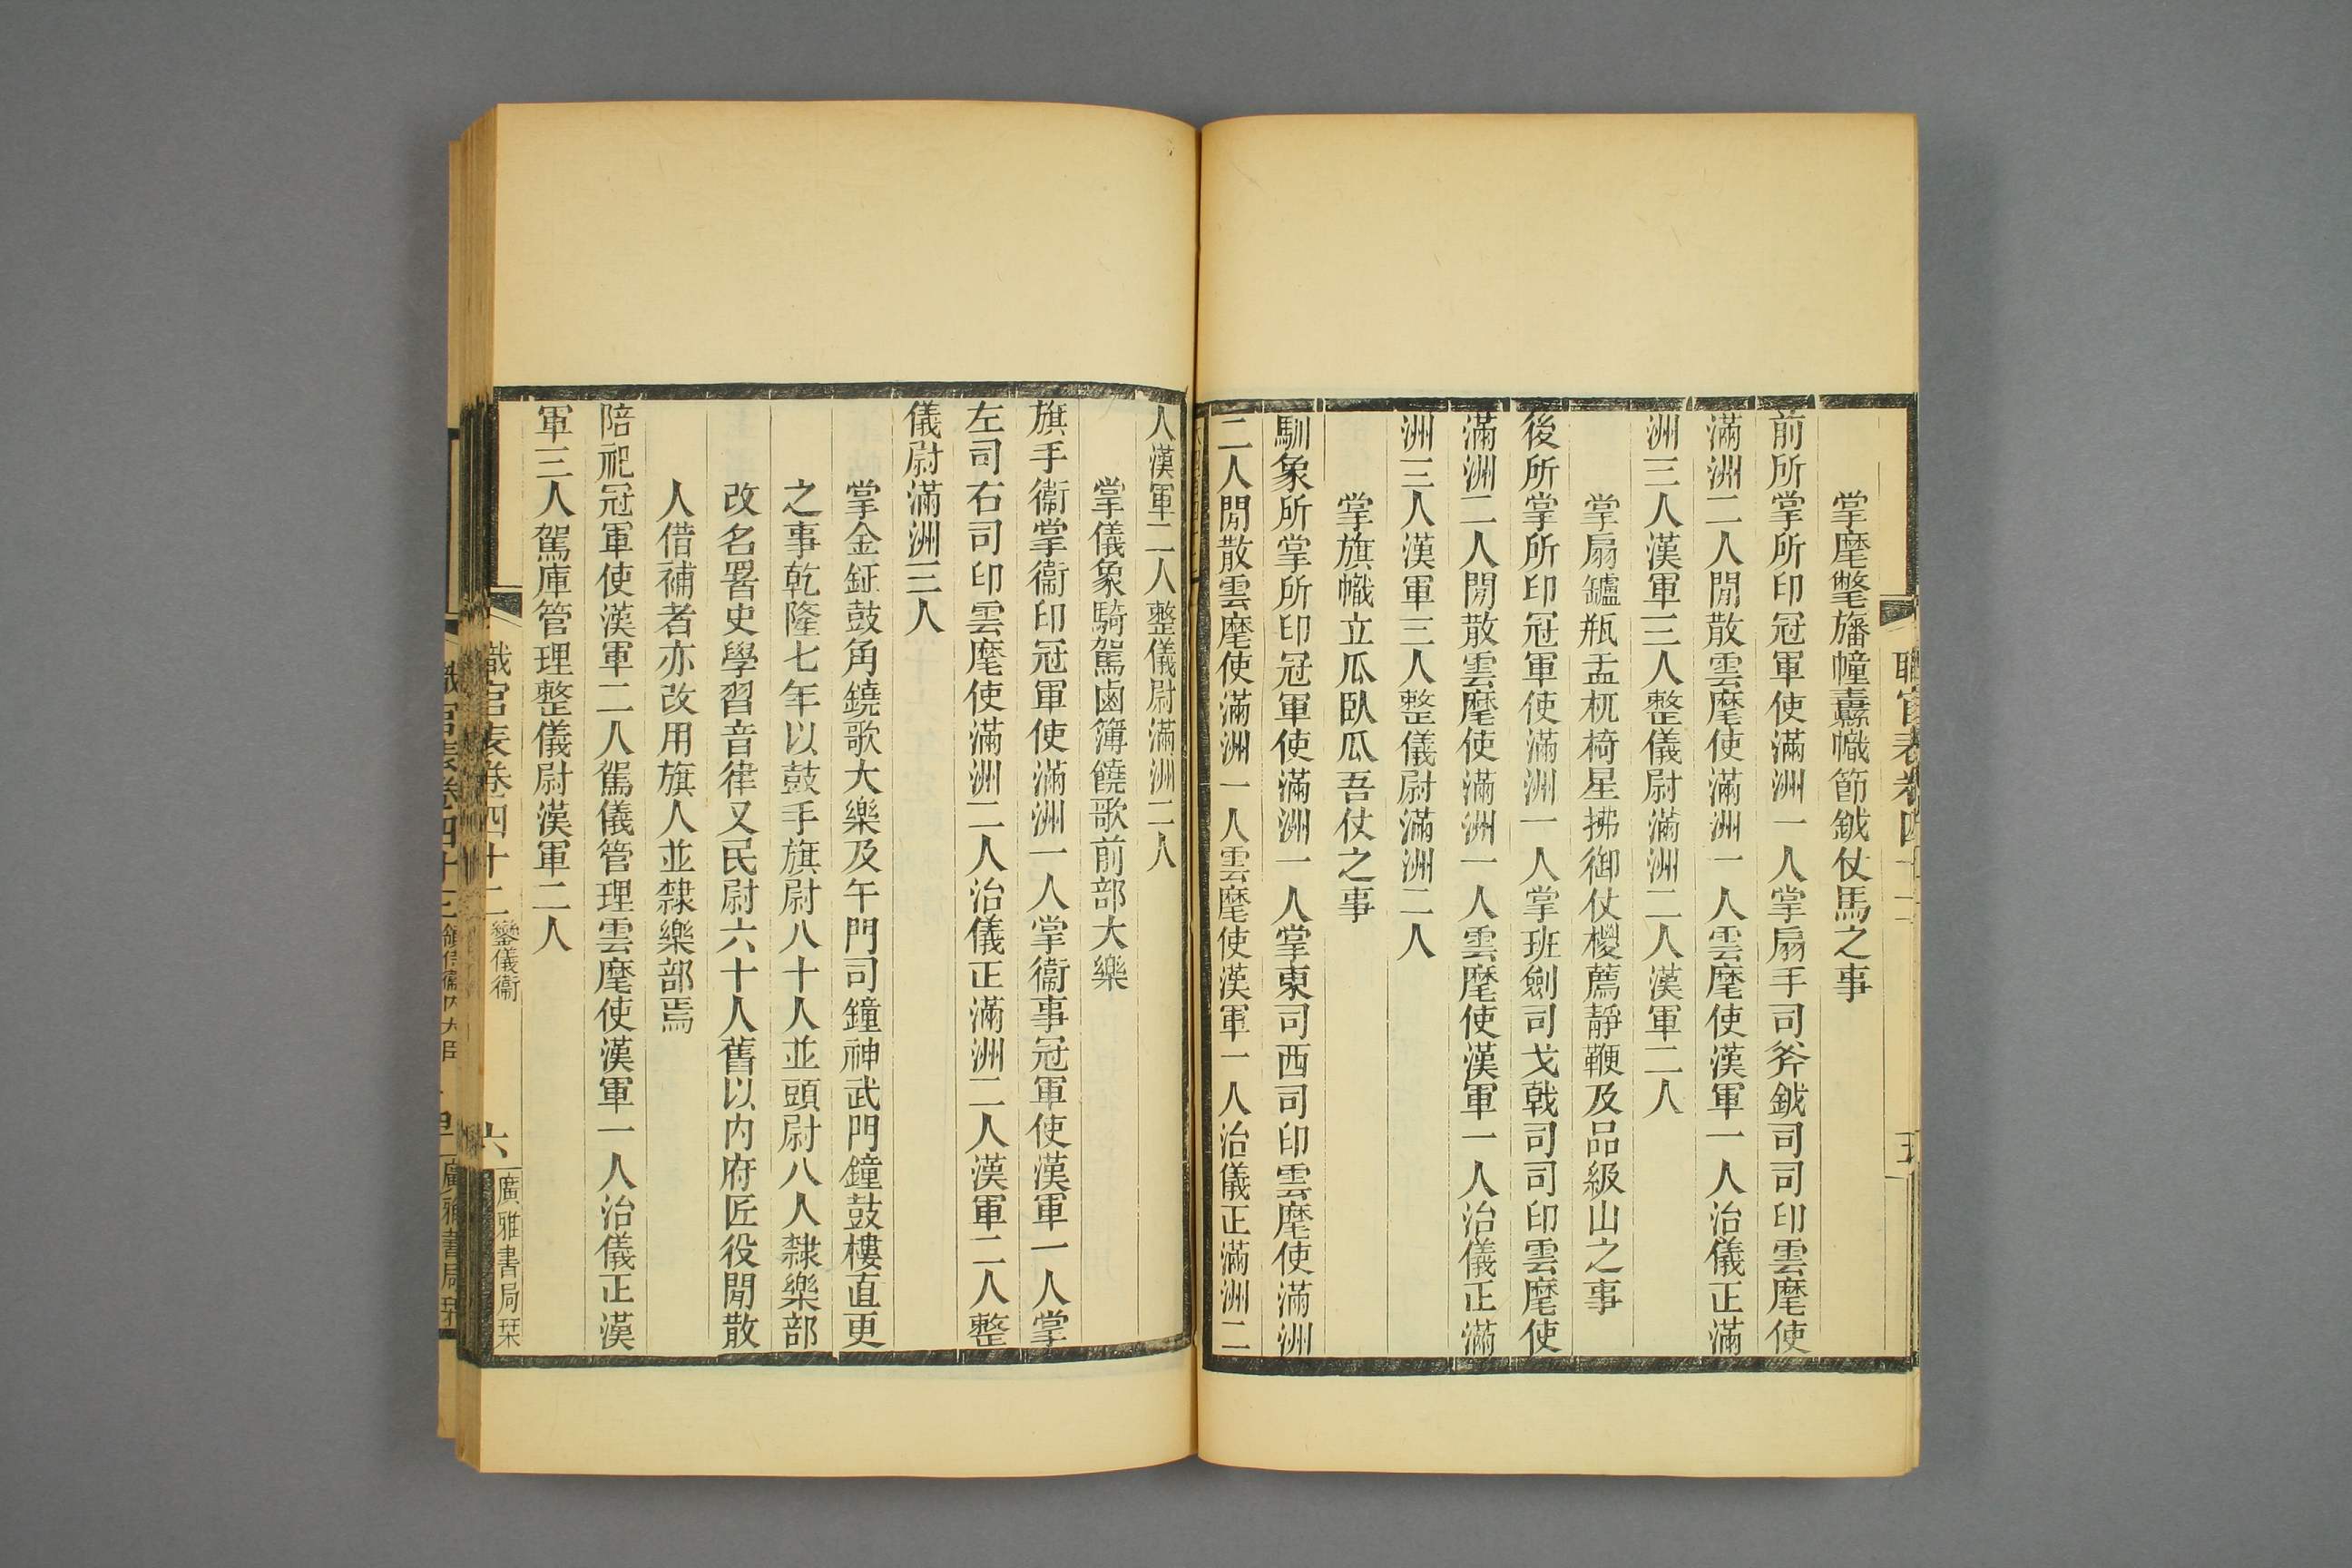 掌麾氅旛幢纛幟節鉞仗馬之事
前所掌所印冠軍使滿洲一人掌扇手司斧鉞司司印雲麾使
滿洲二人閒散雲麾使滿洲一人雲麾使漢軍一人治儀正滿
洲三人漢軍三人整儀尉滿洲二人漢軍二人
掌扇鑪瓶盂杌椅星拂御仗椶薦靜鞭及品級山之事
後所掌所印冠軍使滿洲一人掌班劍司戈戟司司印雲麾使
滿洲二人閒散雲麾使滿洲一人雲麾使漢軍一人治儀正滿
洲三人漢軍三人整儀尉滿洲二人
掌旗幟立瓜臥瓜吾仗之事
馴象所掌所印冠軍使滿洲一人掌東司西司印雲麾使滿洲
二人閒散雲麾使滿洲一人雲麾使漢軍一人治儀正滿洲二
人漢軍二人整儀尉滿洲二人
掌儀象騎駕鹵簿鐃歌前部大樂
旗手衞掌衞印冠軍使滿洲一人掌衞事冠軍使漢軍一人掌
左司右司印雲麾使滿洲二人治儀正滿洲二人漢軍二人整
儀尉滿洲三人
掌金鉦鼓角鐃歌大樂及午門司鐘神武門鐘鼓樓直更
之事乾隆七年以鼓手旗尉八十人並頭尉八人隸樂部
改名署史學習音律又民尉六十人舊以內府匠役閒散
人借補者亦改用旗人並隸樂部焉
陪祀冠軍使漢軍二人駕儀管理雲麾使漢軍一人治儀正漢
軍三人駕庫管理整儀尉漢軍二人
職官表卷四十二 鑾儀衞 六 廣雅書局栞